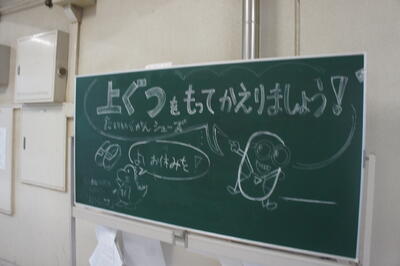 上ぐつをもってかえりましょう!
たいいくかんシューズ
よいお休みを!